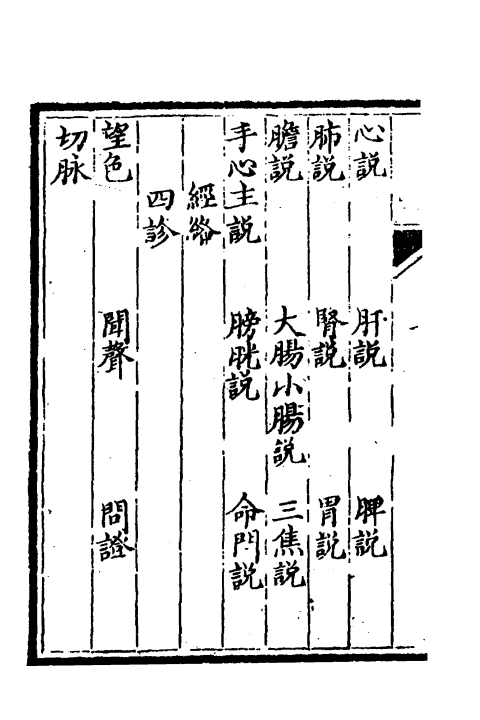 心說　肝說　脾說
肺說　腎說　胃說
膽說　大腸小腸說　三焦說
手心主說　膀胱說　命門說
經絡
四診
望色　聞聲　問證
切脉